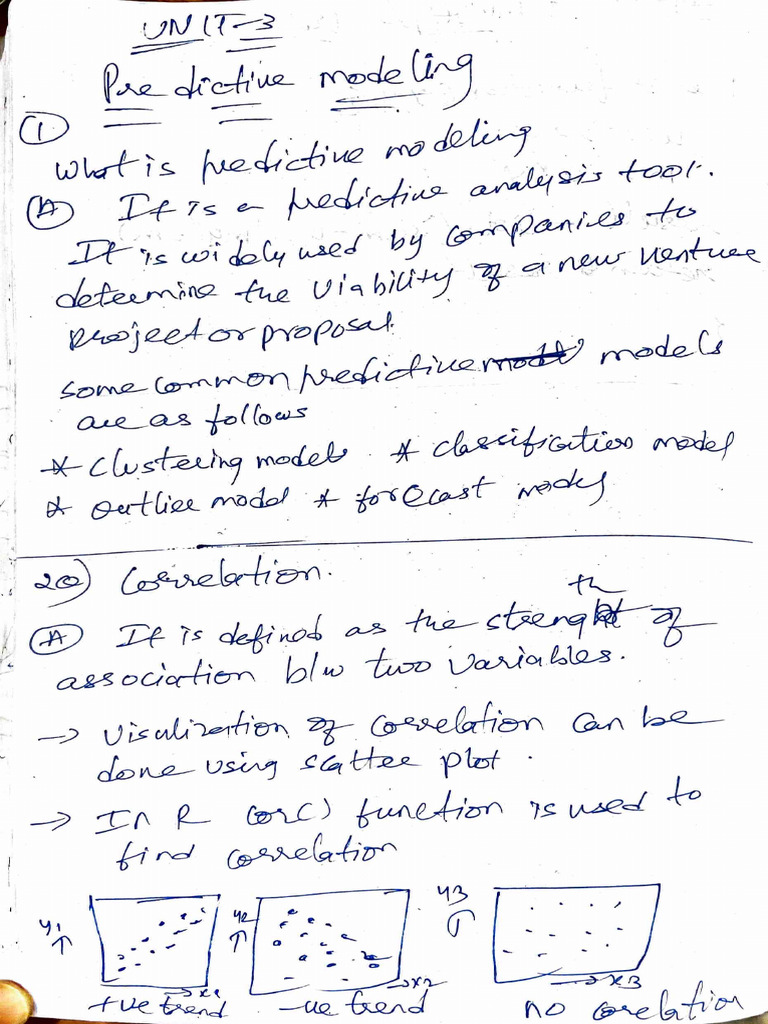 UNIT-3
Predictive modeling
①
What is predictive modeling
Ⓐ It is a predictive analysis tool.
It is widely used by companies to
determine the viability of a new venture
project or proposal.
some common predictive models
are as follows
* clustering models * classification model
* outlier model * forecast model
2Q) Correlation.
Ⓐ It is defined as the strength of
association b/w two variables.
→ Visulization of correlation can be
done using scatter plot.
→ In R cor() function is used to
find correlation
y1 ↑ y2 ↑ y3 ↑
→ x1 → x2 → x3
+ve trend -ve trend no corelation